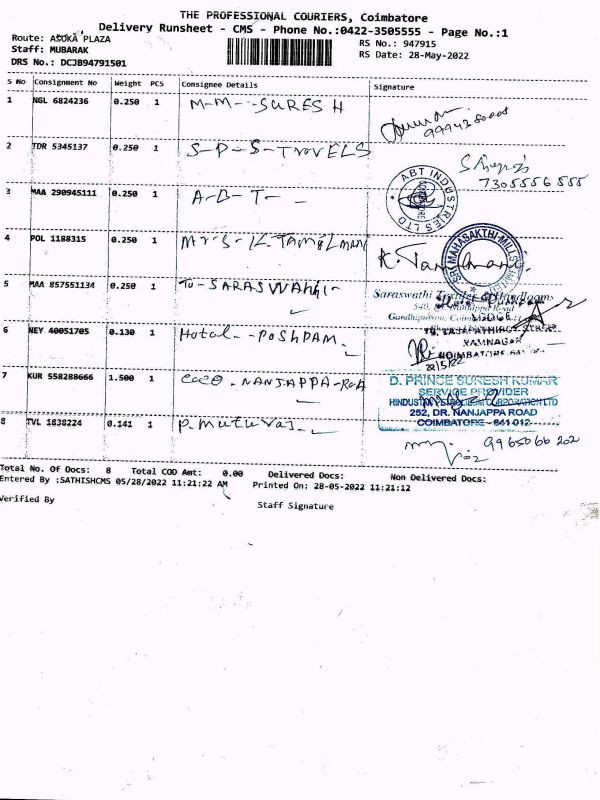 THE PROFESSIONAL COURIERS, Coimbatore
Delivery Runsheet - CMS - Phone No.:0422-3505555 - Page No.:1
Route: ASOKA PLAZA
RS No.: 947915
Staff: MUBARAK
RS Date: 28-May-2022
DRS No.: DCJB94791501
S No Consignment No Weight PCS Consignee Details Signature
1 NGL 6824236 0.250 1 M-M-SURESH
2 TDR 5345137 0.250 1 S-P-S-TravELS
7305556555
3 MAA 290945111 0.250 1 A-B-T-
ABT INDUSTRIES LTD
4 POL 1188315 0.250 1 Mrs-K.TAMilMANi
K. Tamilmani
SRI MAHASAKTHI MILLS
5 MAA 857551134 0.250 1 To-SARASWAthi-
Saraswathi
Gandhipuram,
LODGE
6 NEY 40051705 0.130 1 Hotal--POShPAM.
RAMNAGAR
COIMBATORE
7 KUR 558288666 1.500 1 COCO.NANJAPPA-RoA
D. PRINCE SURESH KUMAR
SERVICE PROVIDER
HINDUSTAN PETROLEUM CORPORATION LTD
252, DR. NANJAPPA ROAD
COIMBATORE - 641 012
8 TVL 1838224 0.141 1 P.Mutuvaj.
9965066202
Total No. Of Docs: 8 Total COD Amt: 0.00 Delivered Docs: Non Delivered Docs:
Entered By :SATHISHCMS 05/28/2022 11:21:22 AM Printed On: 28-05-2022 11:21:12
Verified By
Staff Signature